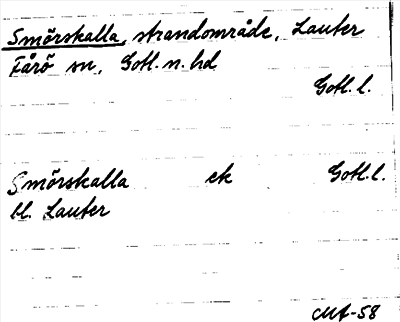 Smörskalla, strandområde, Lauter
Fårö sn, Gotl. n. hd
Gotl. l.
Smörskalla ek Gotl. l.
bl. Lauter
MA-58